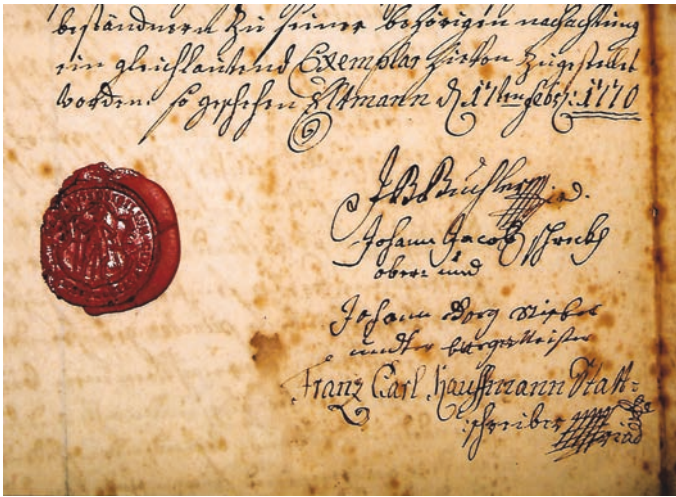 beständnern zu seiner behörigen nachachtung
ein gleichlautend Exemplar hievon zugestellt
worden. so geschehen Eltmann d. 17ten febr: 1770
J B Büchler
Johann Jacob
ober: und
Johann Görg
undter burgermeister
Franz Carl Kauffmann Statt=
schreiber